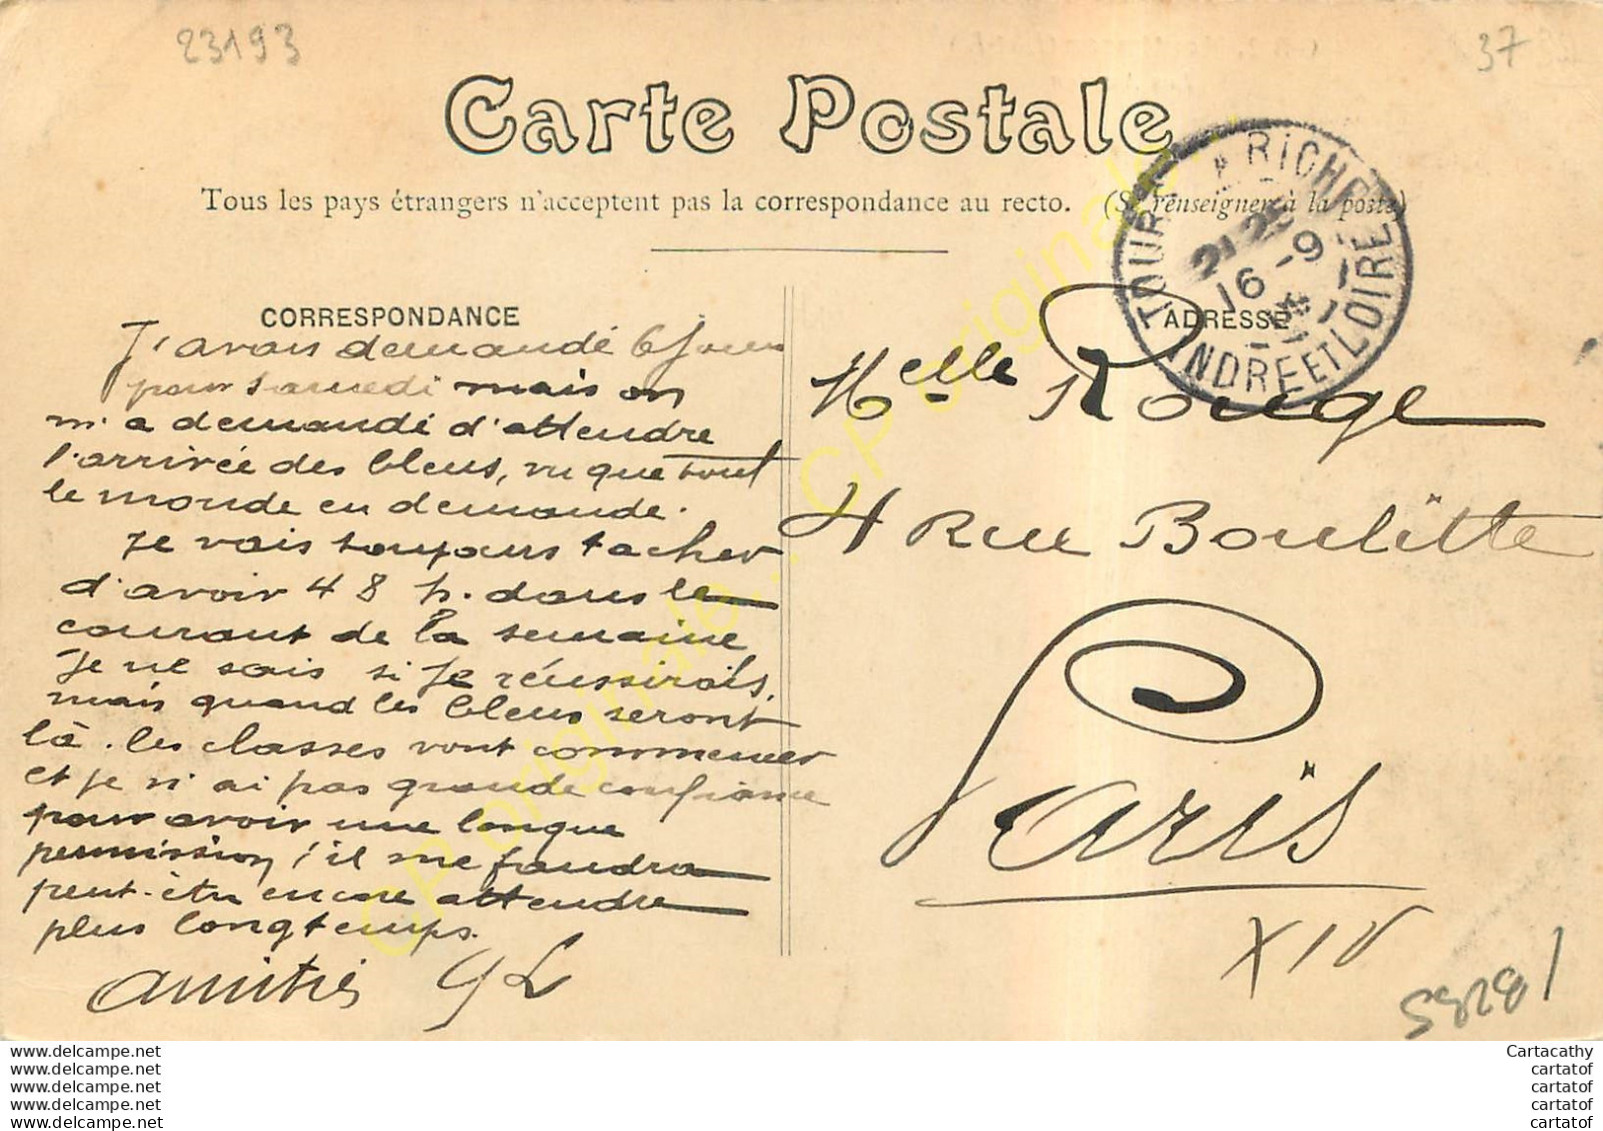 23193
37
Carte Postale
Tous les pays étrangers n'acceptent pas la correspondance au recto. (Se renseigner à la poste)
TOURS * RICHE
21 25
16 -9
INDRE ET LOIRE
CORRESPONDANCE
ADRESSE
J'avais demandé 6 jours
pour samedi mais on
m'a demandé d'attendre
l'arrivée des bleus, vu que tout
le monde en demande.
Je vais toujours tacher
d'avoir 48 h. dans le
courant de la semaine
Je ne sais si je réussirais,
mais quand les bleus seront
là. les classes vont commencer
et je n'ai pas grande confiance
pour avoir une longue
permission, il me faudra
peut-être encore attendre
plus longtemps.
Amitiés GL
Melle Rouge
4 Rue Boulitte
Paris
XIV
CP originale
CP originale
www.delcampe.net
www.delcampe.net
www.delcampe.net
www.delcampe.net
www.delcampe.net
Cartacathy
cartatof
cartatof
cartatof
cartatof